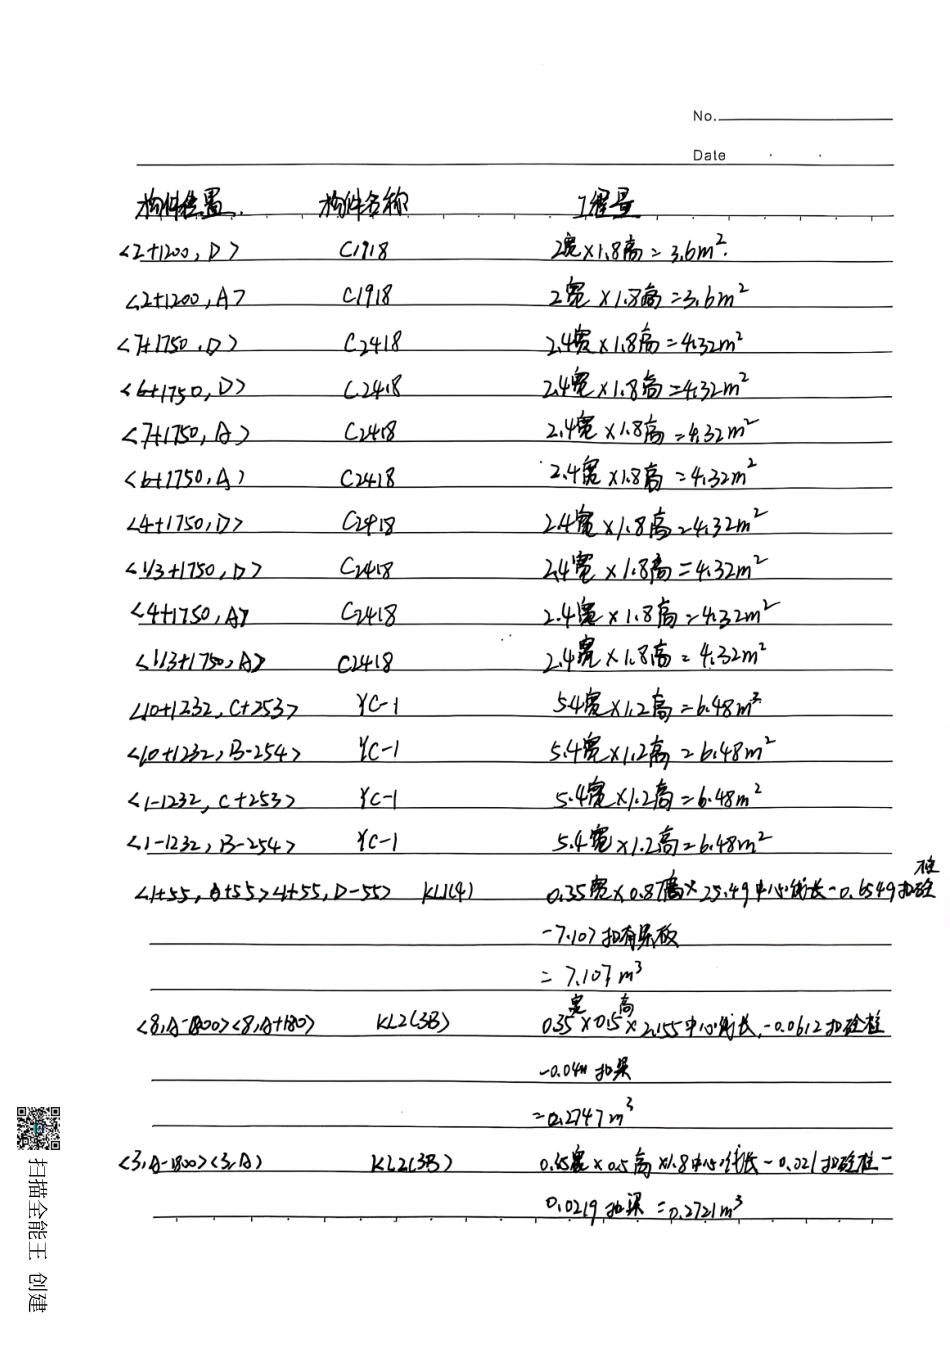 No.
Date
构件位置 构件名称 工程量
<2+1200, D> C1918 2宽×1.8高=3.6m².
<2+1200, A> C1918 2宽×1.8高=3.6m²
<7+1750, D> C2418 2.4宽×1.8高=4.32m²
<6+1750, D> C2418 2.4宽×1.8高=4.32m²
<7+1750, A> C2418 2.4宽×1.8高=4.32m²
<6+1750, A> C2418 2.4宽×1.8高=4.32m²
<4+1750, D> C2418 2.4宽×1.8高=4.32m²
<1/3+1750, D> C2418 2.4宽×1.8高=4.32m²
<4+1750, A> C2418 2.4宽×1.8高=4.32m²
<1/3+1750, A> C2418 2.4宽×1.8高=4.32m²
<10+1232, C+253> YC-1 5.4宽×1.2高=6.48m²
<10+1232, B-254> YC-1 5.4宽×1.2高=6.48m²
<1-1232, C+253> YC-1 5.4宽×1.2高=6.48m²
<1-1232, B-254> YC-1 5.4宽×1.2高=6.48m²
<1+55, A+55><1+55, D-55> KL1(4) 0.35宽×0.87高×25.49中心线长-0.6549扣砼柱
-7.107扣有梁板
=7.107m³
<8, A-1800><8, A+180> KL2(3B) 0.35宽×0.5高×2.155中心线长-0.0612扣砼柱
-0.041扣梁
=0.2747m³
<3, A-1800><3, A> KL2(3B) 0.35宽×0.5高×1.8中心线长-0.021扣砼柱-
0.0219扣梁=0.2721m³
扫描全能王 创建